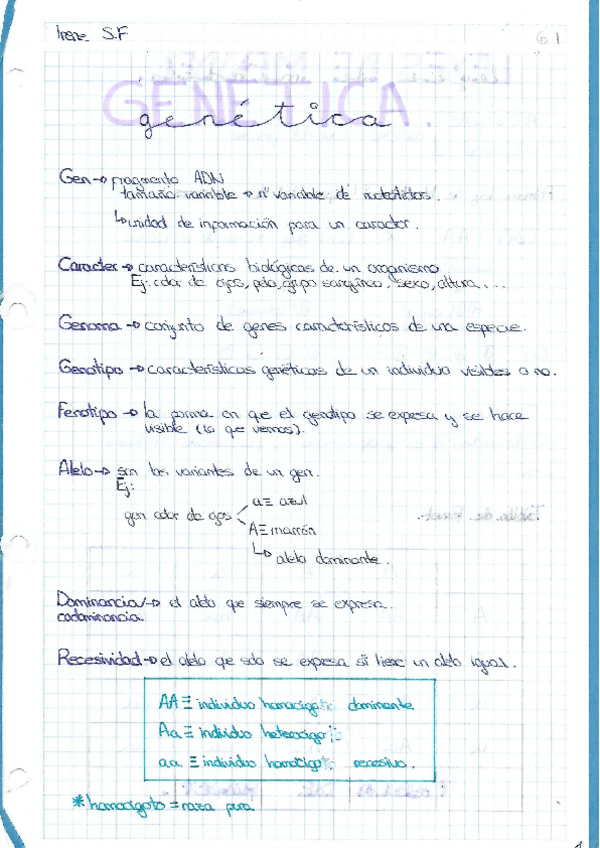 Irene S.F
61
GENÉTICA.
genética
Gen → fragmento ADN
tamaño variable → nº variable de nucleótidos.
↳ unidad de información para un caracter.
Caracter → características biológicas de un organismo
Ej: color de ojos, pelo, grupo sanguíneo, sexo, altura...
Genoma → conjunto de genes característicos de una especie.
Genotipo → características genéticas de un individuo visibles o no.
Fenotipo → la forma en que el genotipo se expresa y se hace
visible (lo que vemos).
Alelo → son las variantes de un gen.
Ej:
a ≡ azul
gen color de ojos
A ≡ marrón
↳ alelo dominante.
Dominancia/→ el alelo que siempre se expresa.
codominancia
Recesividad → el alelo que solo se expresa si tiene un alelo igual.
AA ≡ individuo homocigoto dominante
Aa ≡ individuo heterocigoto
aa ≡ individuo homocigoto recesivo.
* homocigoto = raza pura
1